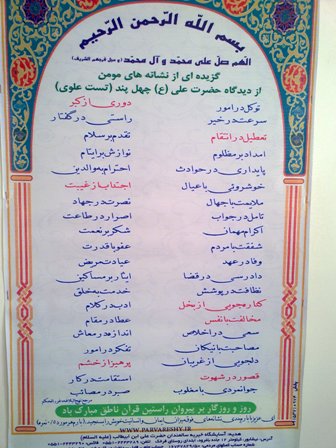 بسم الله الرحمن الرحیم
اللهم صل علی محمد و آل محمد (و عجل فرجهم الشریف)
گزیده ای از نشانه های مومن
از دیدگاه حضرت علی (ع) چهل پند (تست علوی)
توکل در امور
دوری از کبر
سرعت در خیر
راستی در گفتار
تعطیل در انتقام
تقدم بر سلام
امداد بر مظلوم
نوازش بر ایتام
پایداری در حوادث
احترام به والدین
خوشرویی با عیال
اجتناب از غیبت
ملایمت با جهال
نصرت در جهاد
تامل در جواب
اصرار در طاعت
اکرام مهمانی
شکر بر نعمت
شفقت با مردم
عفو با قدرت
وفا در عهد
عیادت مریض
دادرسی در قضا
ایثار بر مساکین
نظافت در پوشش
خدمت به خلق
کناره جویی از بخل
ادب در کلام
مخالفت با نفس
عطا در مقام
سعی در اخلاص
اندازه در معاش
مصاحبت با نیکان
تفکر در امور
دلجویی از غریبان
پرهیز از خشم
قصور در شهوت
استقامت در کار
جوانمردی با مغلوب
صبر در مصائب
روز و روزگار بر پیروان راستین قرآن ناطق مبارک باد
WWW.PARVARESHY.IR